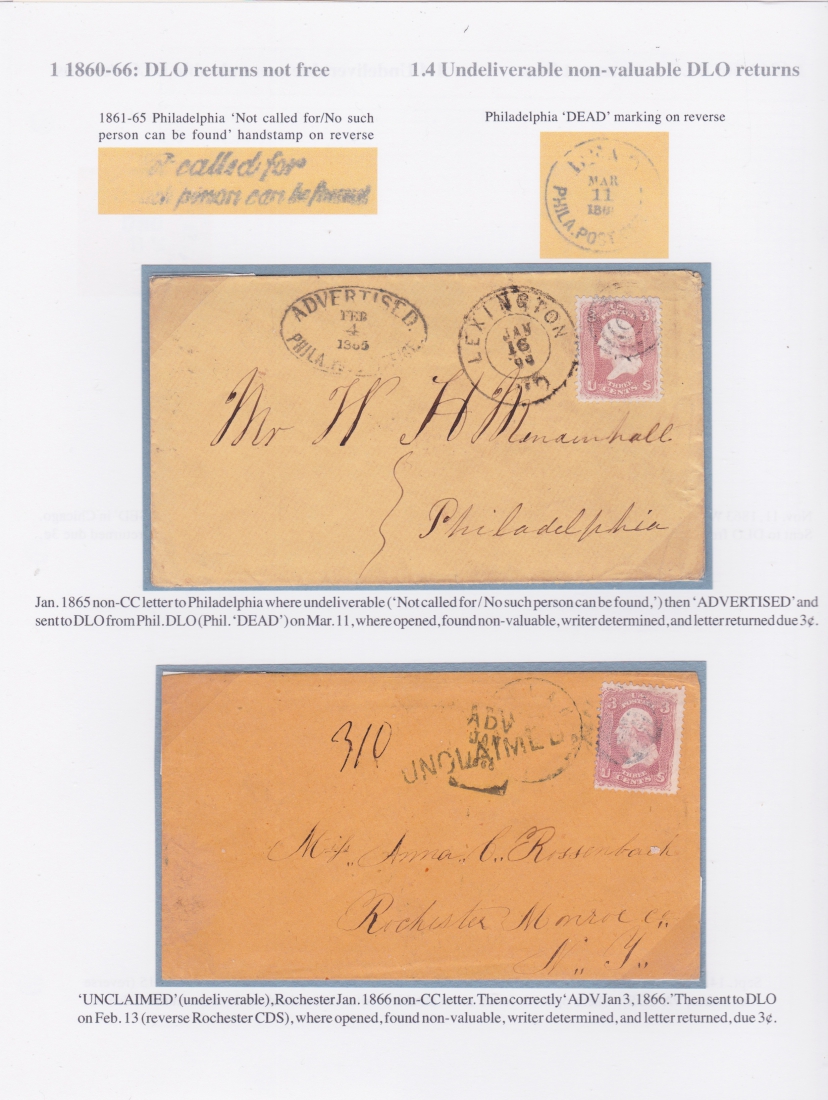 1 1860-66: DLO returns not free
1.4 Undeliverable non-valuable DLO returns
1861-65 Philadelphia ‘Not called for/No such
person can be found’ handstamp on reverse
Philadelphia ‘DEAD’ marking on reverse
called for
person can be found
DEAD
MAR
11
PHILA. POST
ADVERTISED.
FEB
4
1865
PHILA.
LEXINGTON
JAN
16
3 POSTAGE 3
U THREE CENTS S
Mr W H Menainhall
Philadelphia
Jan. 1865 non-CC letter to Philadelphia where undeliverable (‘Not called for / No such person can be found,’) then ‘ADVERTISED’ and
sent to DLO from Phil. DLO (Phil. ‘DEAD’) on Mar. 11, where opened, found non-valuable, writer determined, and letter returned due 3¢.
310
ADV
JAN
UNCLAIMED
3 POSTAGE 3
U THREE CENTS S
Miss Anna C. Rossenbach
Rochester Monroe Co.,
N. Y.
‘UNCLAIMED’ (undeliverable), Rochester Jan. 1866 non-CC letter. Then correctly ‘ADV Jan 3, 1866.’ Then sent to DLO
on Feb. 13 (reverse Rochester CDS), where opened, found non-valuable, writer determined, and letter returned, due 3¢.